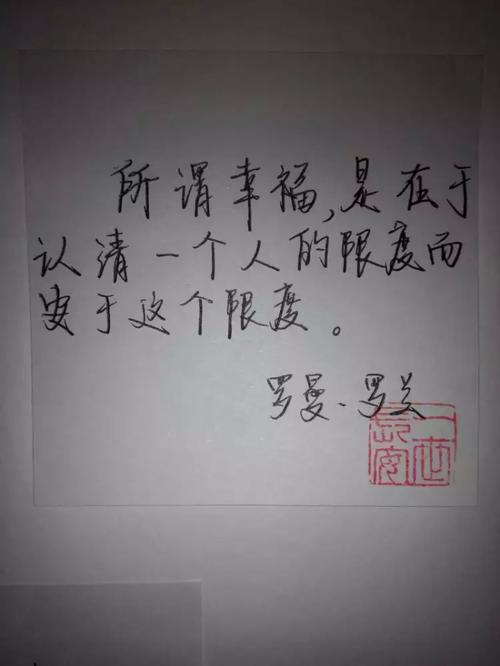 所谓幸福,是在于
认清一个人的限度而
安于这个限度。
罗曼·罗兰
一世
长安